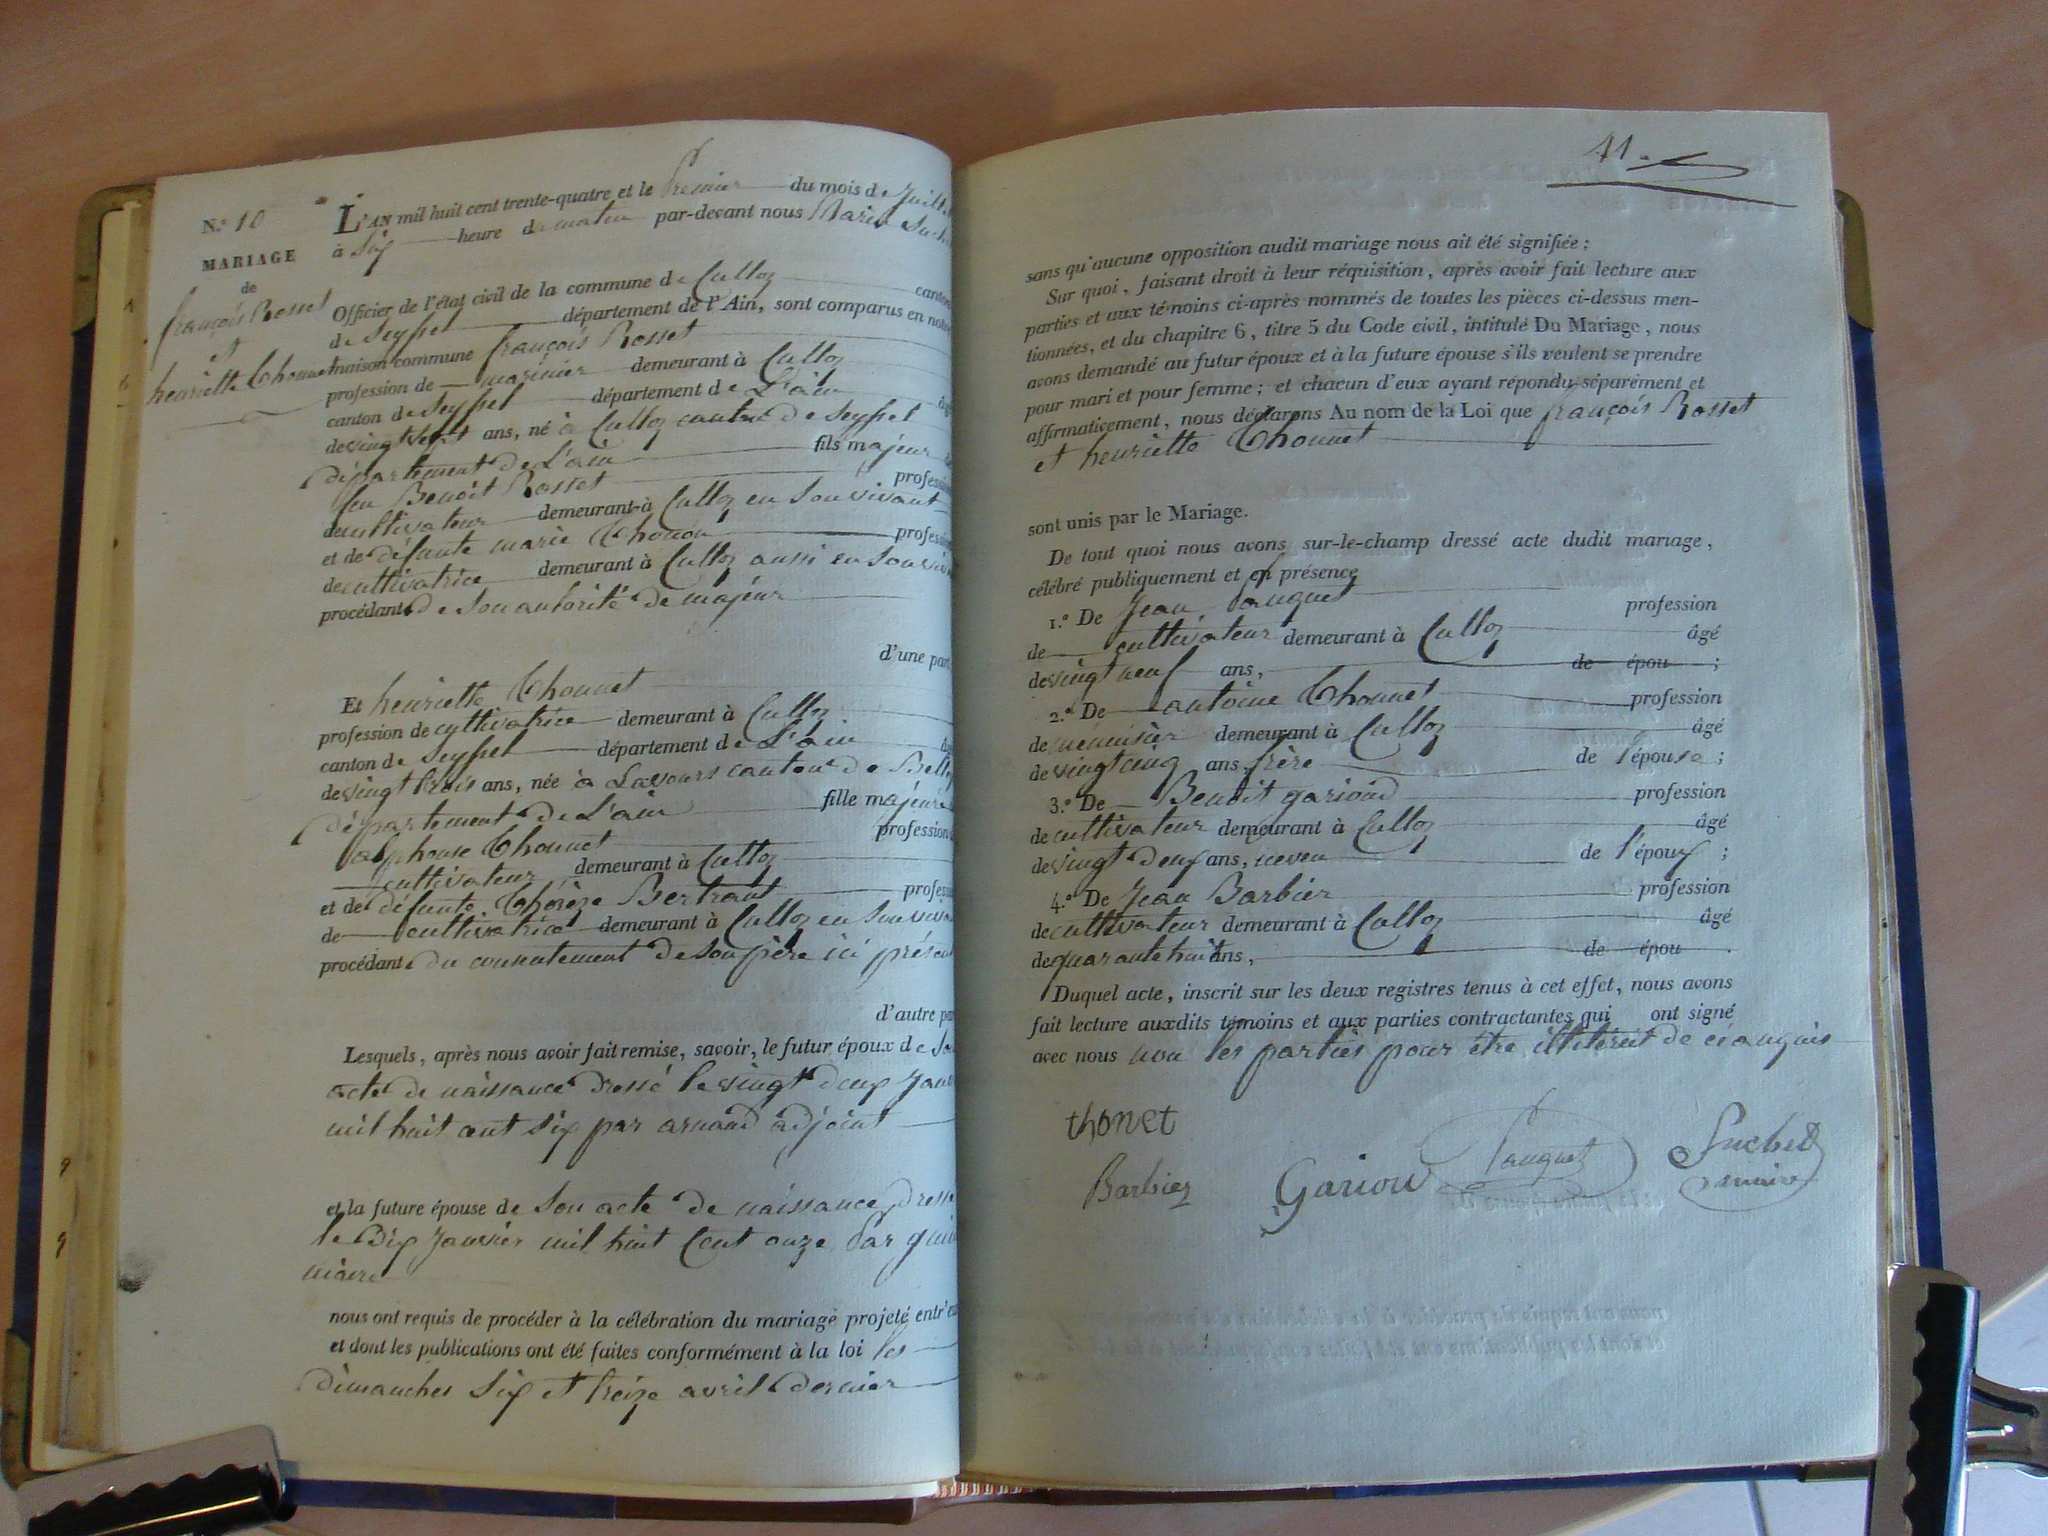 N.º 10
MARIAGE
de
françois Rosset
et
henriette Thonnet
L'AN mil huit cent trente-quatre et le Premier du mois de Juill
à Six heure de matin par-devant nous Marin Such
Officier de l'état civil de la commune de Culloz canton
de Seyssel département de l'Ain, sont comparus en notre
maison commune françois Rosset
profession de marinier demeurant à Culloz
canton de Seyssel département de L'ain âgé
de vingt sept ans, né à Culloz canton de Seyssel
département de L'ain fils majeur de
feu Benoit Rosset profession
de cultivateur demeurant à Culloz en Son vivant
et de défunte marie Thonon profession
de cultivatrice demeurant à Culloz aussi en Son viva
procédant de Son autorité de majeur
d'une part
Et henriette Thonnet
profession de cultivatrice demeurant à Culloz
canton de Seyssel département de L'ain âgé
de vingt trois ans, née à Lavours canton de Belley
département de L'ain fille majeure
alphonse Thonnet profession d
cultivateur demeurant à Culloz
et de défunte Thérèze Bertrant profess
de cultivatrice demeurant à Culloz en Son viva
procédant du consentement de Son père ici présent
d'autre par
Lesquels, après nous avoir fait remise, savoir, le futur époux de Son
acte de naissance dressé le vingt deux Janv
mil huit cent Six par arnaud adjoint
et la future épouse de Son acte de naissance dressé
le Dix Janvier mil huit Cent onze Par
maire
nous ont requis de procéder à la célébration du mariage projeté entr'eu
et dont les publications ont été faites conformément à la loi les
dimanches Six et treize avril dernier
41.
sans qu'aucune opposition audit mariage nous ait été signifiée ;
Sur quoi, faisant droit à leur réquisition, après avoir fait lecture aux
parties et aux témoins ci-après nommés de toutes les pièces ci-dessus men-
tionnées, et du chapitre 6, titre 5 du Code civil, intitulé Du Mariage, nous
avons demandé au futur époux et à la future épouse s'ils veulent se prendre
pour mari et pour femme ; et chacun d'eux ayant répondu séparément et
affirmativement, nous déclarons Au nom de la Loi que françois Rosset
et henriette Thonnet
sont unis par le Mariage.
De tout quoi nous avons sur-le-champ dressé acte dudit mariage,
célébré publiquement et en présence
1.º De Jean Pauguet profession
de cultivateur demeurant à Culloz âgé
de vingt neuf ans, de épou ;
2.º De antoine Thonnet profession
de menuisier demeurant à Culloz âgé
de vingt cinq ans, frère de l'épouse ;
3.º De Benoit gariond profession
de cultivateur demeurant à Culloz âgé
de vingt deux ans, neveu de l'époux ;
4.º De Jean Barbier profession
de cultivateur demeurant à Culloz âgé
de quarante huit ans, de épou .
Duquel acte, inscrit sur les deux registres tenus à cet effet, nous avons
fait lecture auxdits témoins et aux parties contractantes qui ont signé
avec nous non les parties pour être illitéréit de ci anquis
thonet
Barbier
Gariou
Pauguet
Suchet
maire